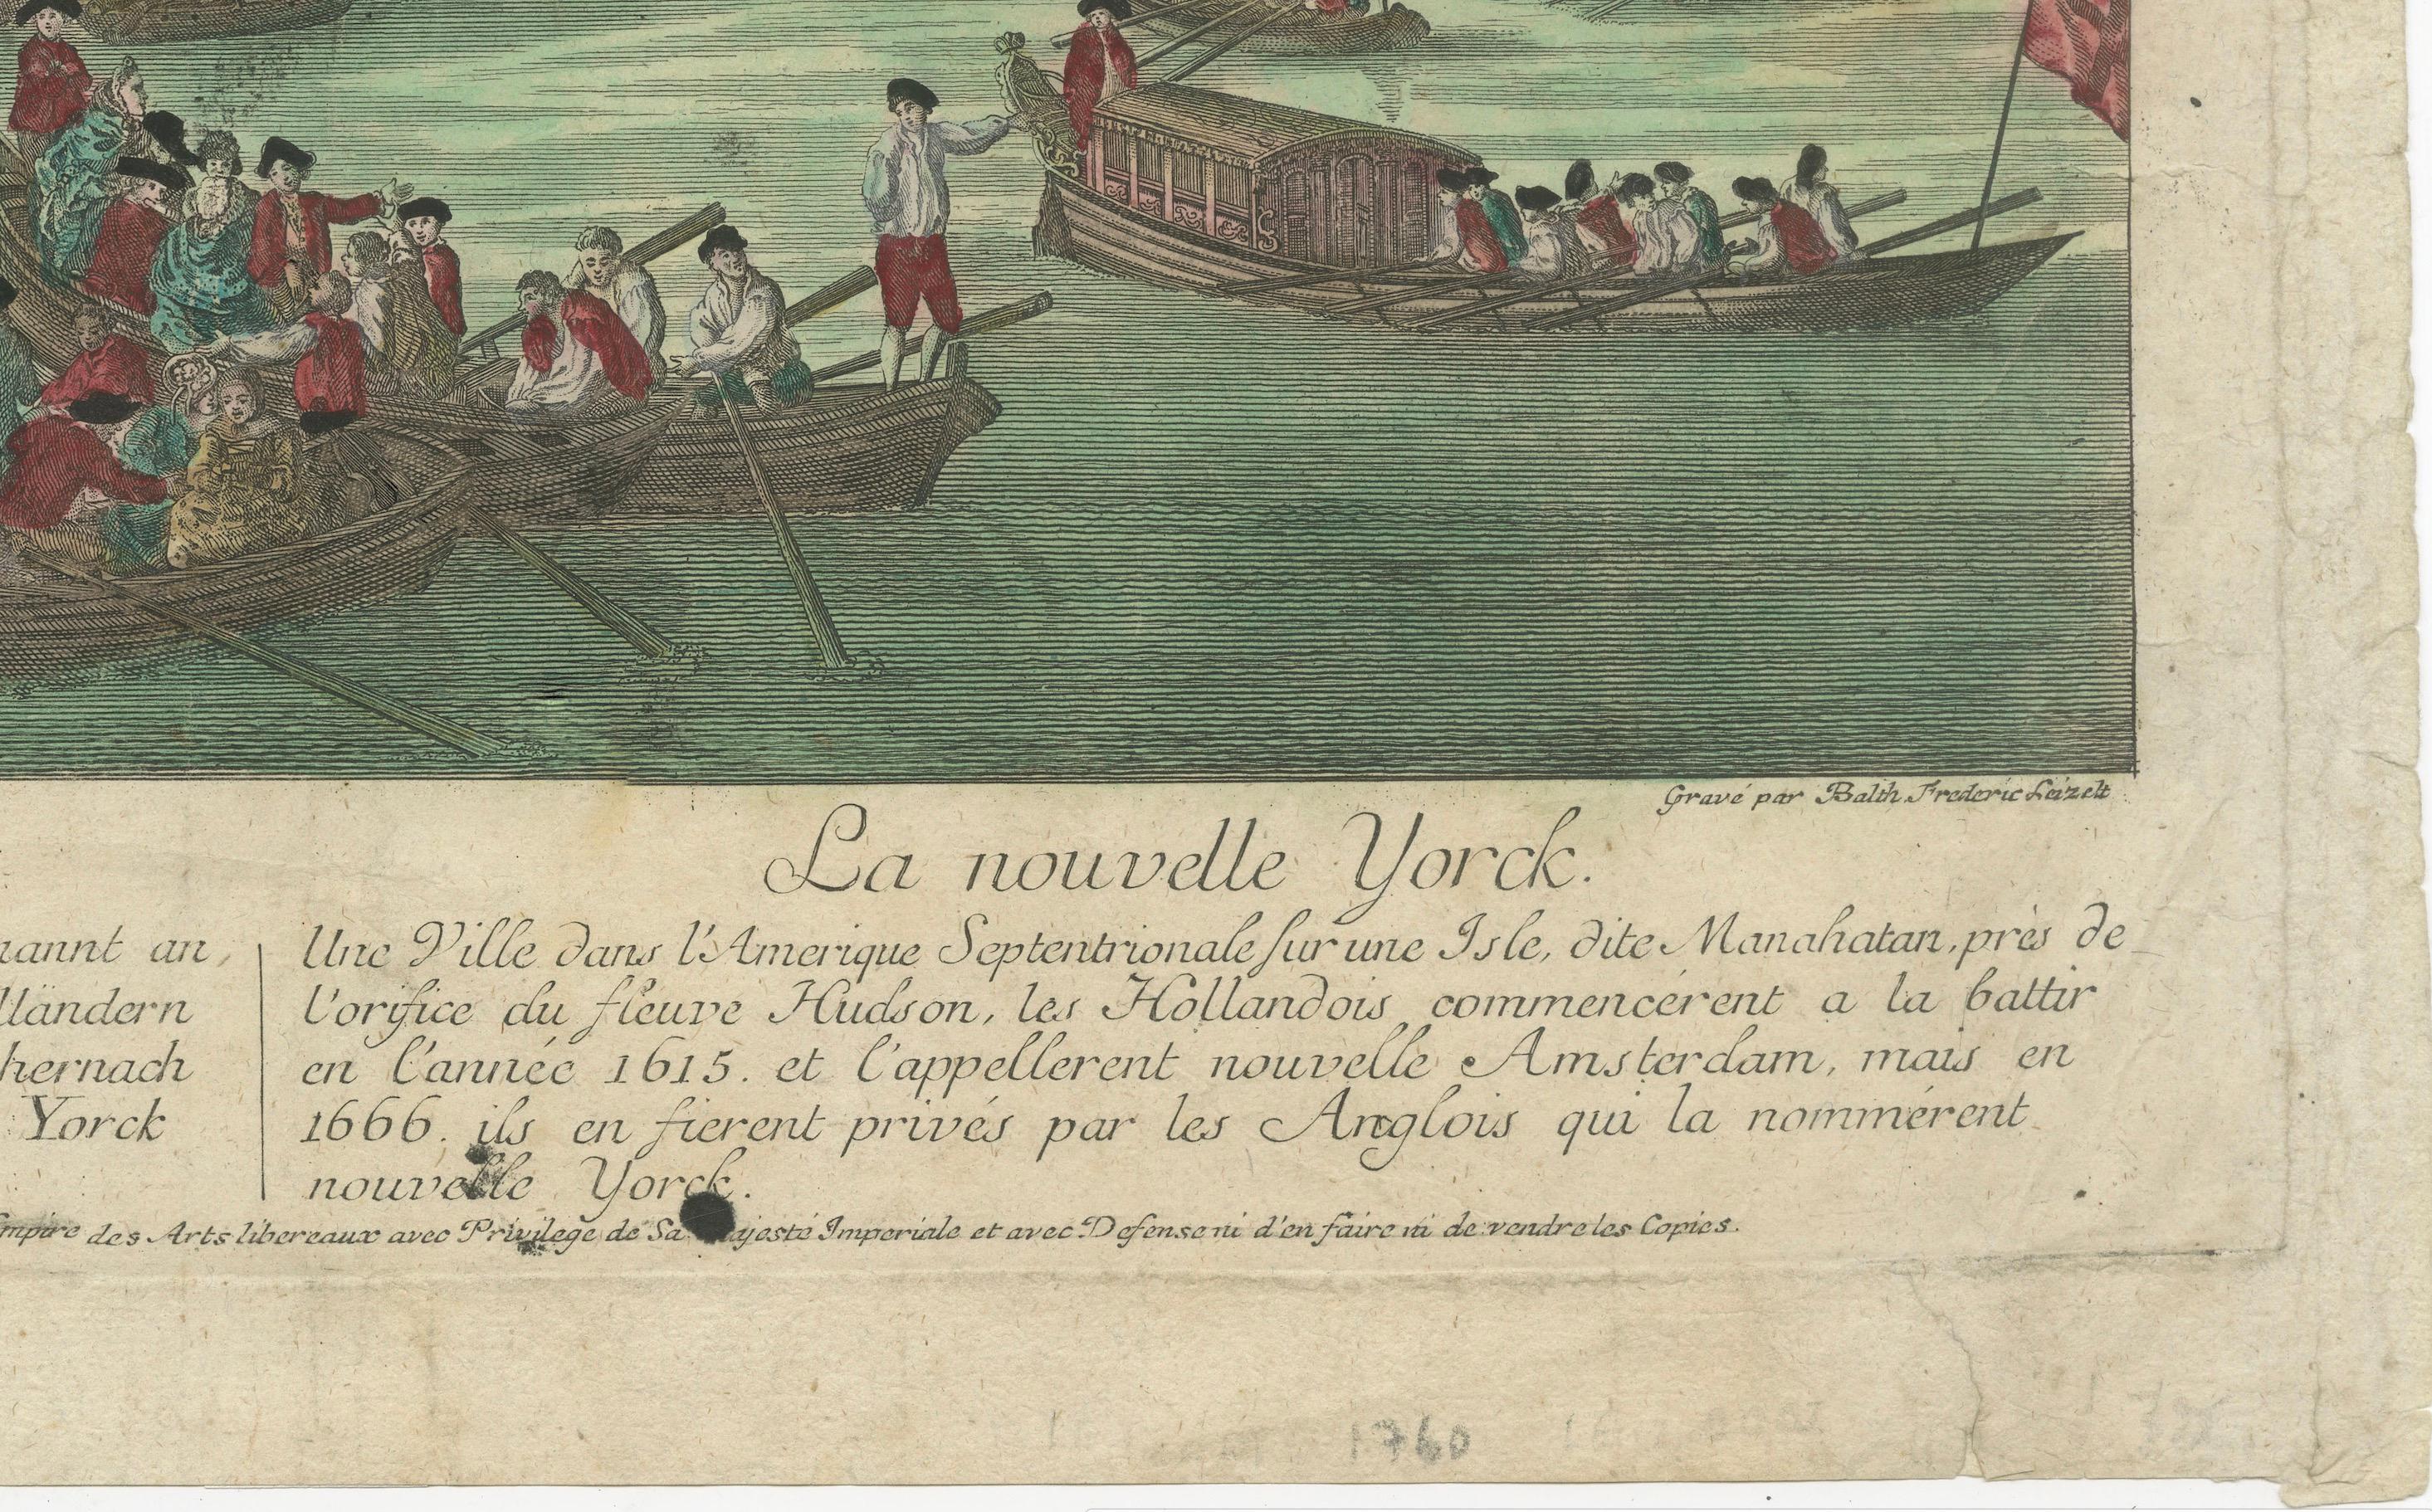 Gravé par Balth. Frederic Leizelt
La nouvelle Yorck.
nannt an,
lländern
hernach
Yorck
Une Ville dans l'Amerique Septentrionale sur une Isle, dite Manahatan, près de
l'orifice du fleuve Hudson, les Hollandois commencérent a la battir
en l'année 1615. et l'appellerent nouvelle Amsterdam, mais en
1666. ils en fierent privés par les Anglois qui la nommérent
nouvelle Yorck.
Empire des Arts libereaux avec Privilege de Sa Majesté Imperiale et avec Defense ni d'en faire ni de vendre les Copies.
1760